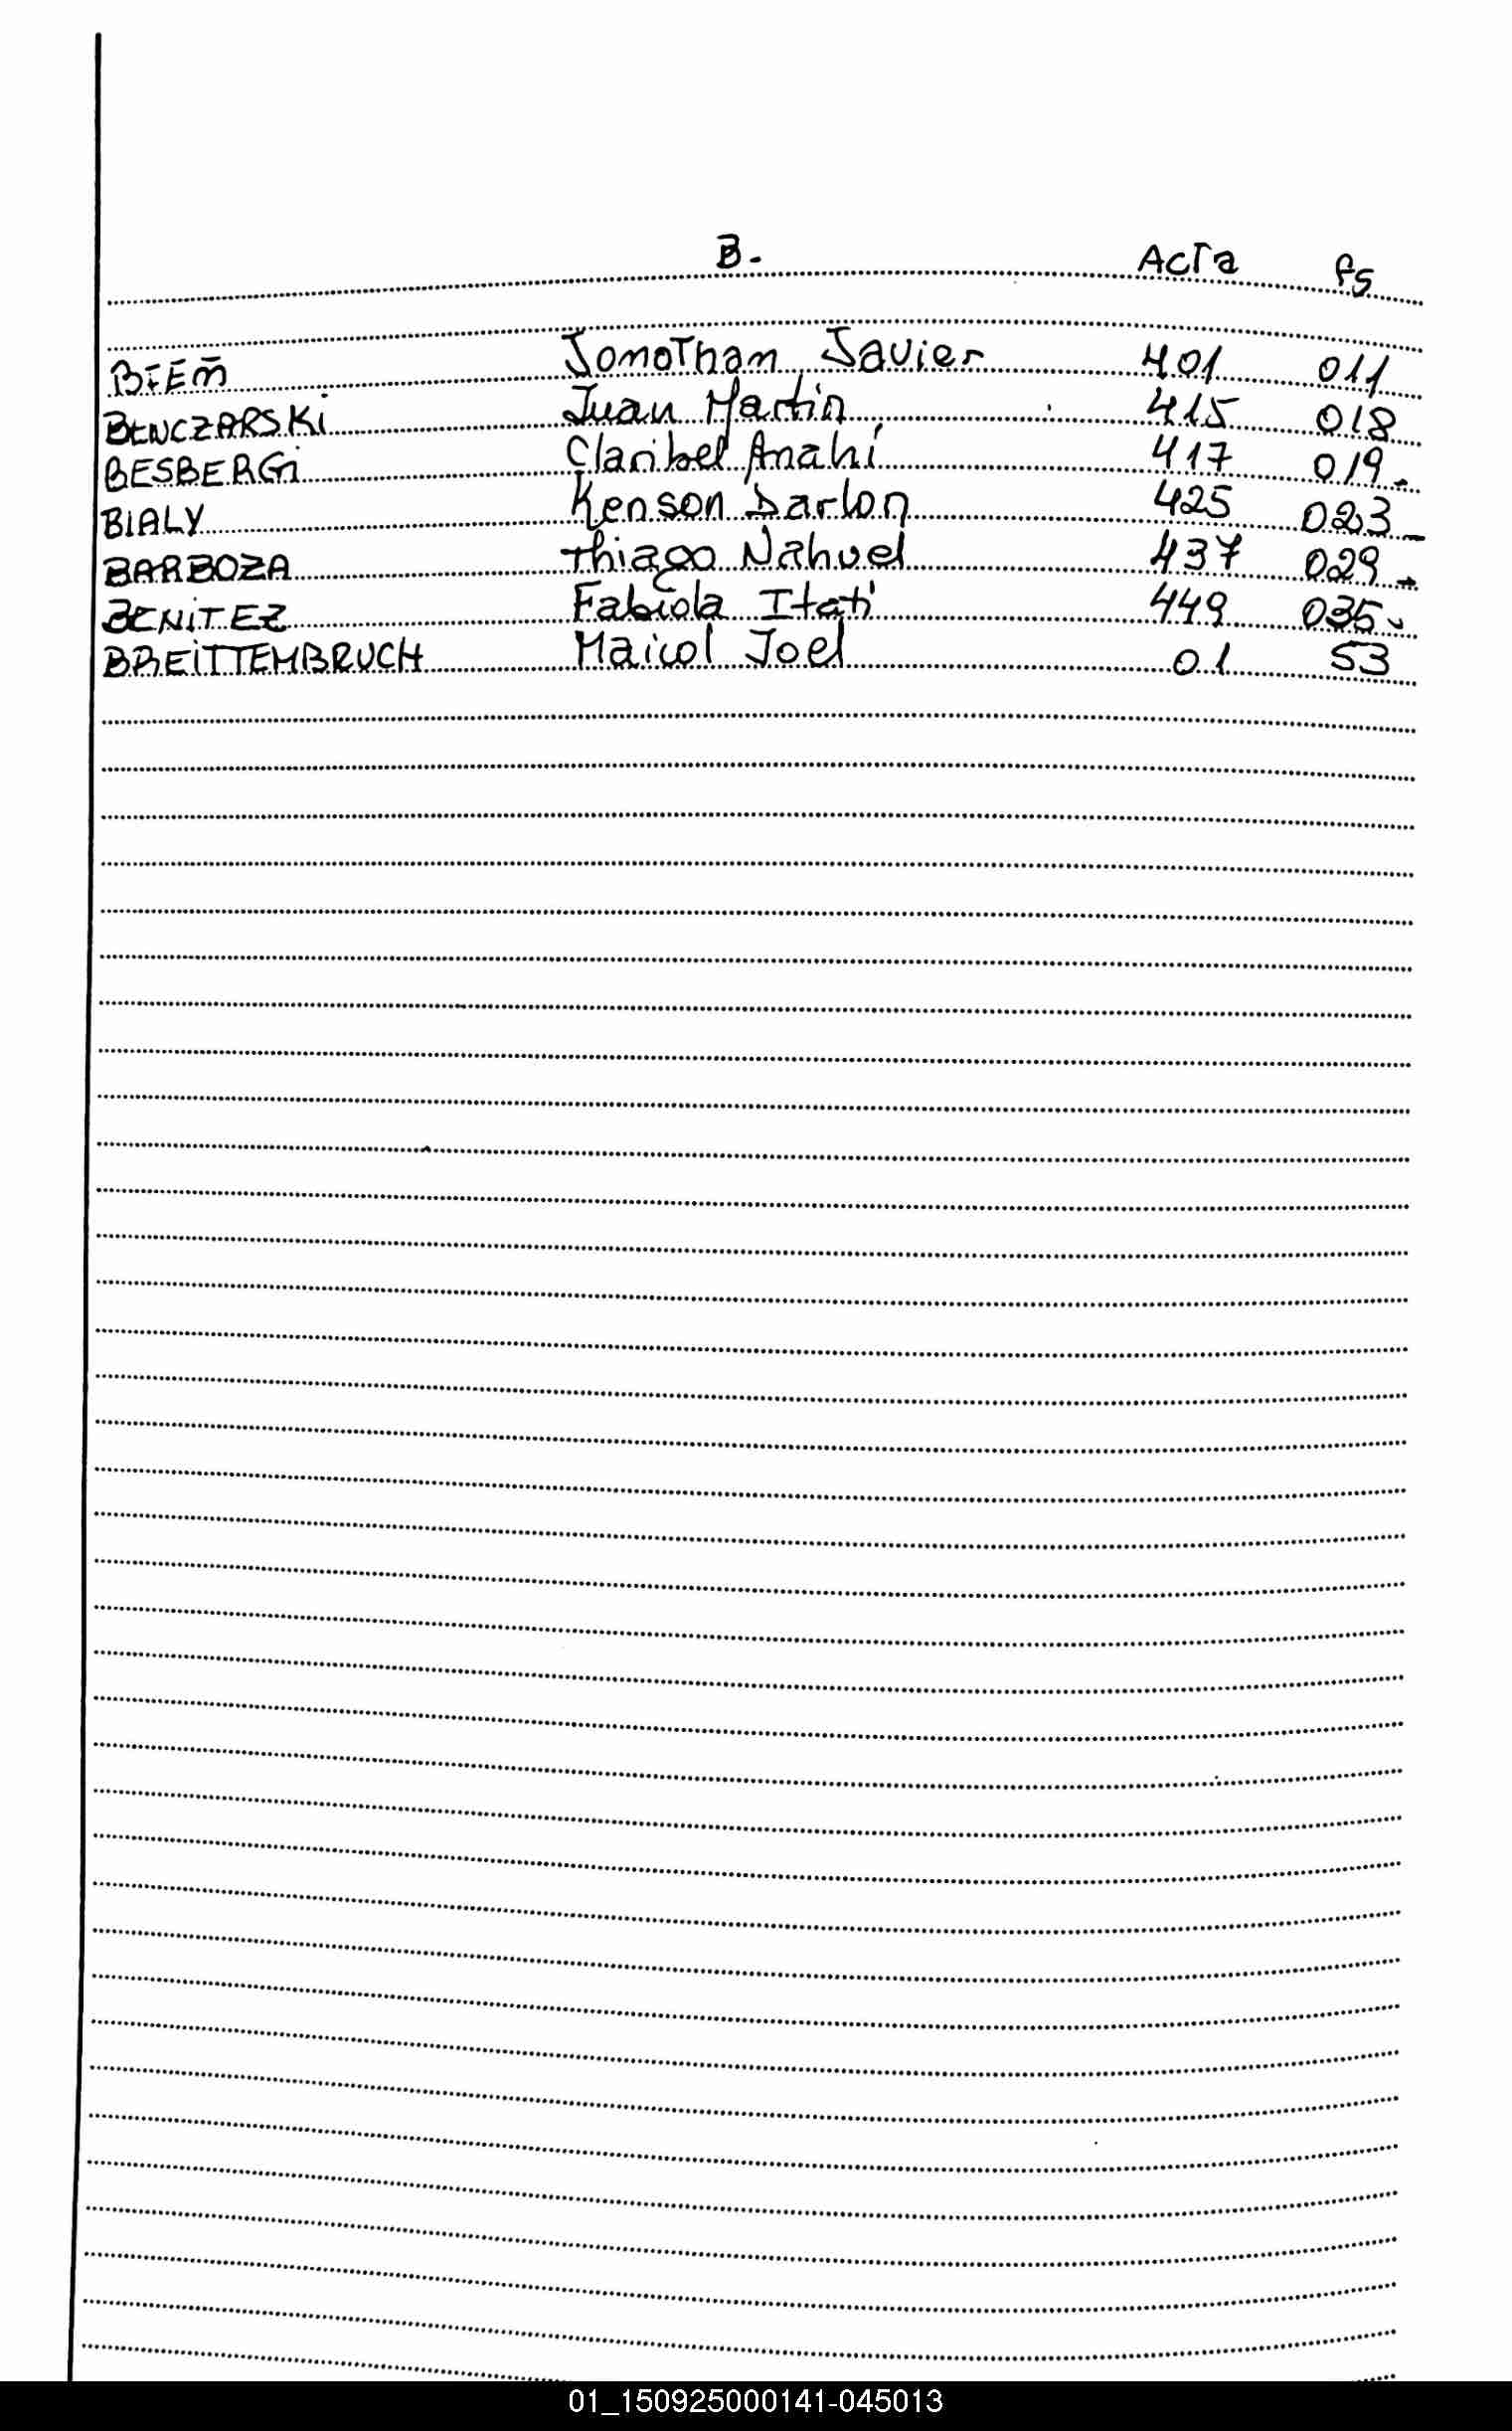 B. Acta fs
Jonothan Javier 401 011
BENCZARSKi Juan Martin 415 018
BESBERGi Claribel Anahí 417 019.
BIALY Kenson Darlon 425 023_
BARBOZA Thiago Nahuel 437 029-
BENiTEZ Fabiola Itatí 449 035-
BREiTTEMBRUCH Maicol Joel 01 53
01_150925000141-045013